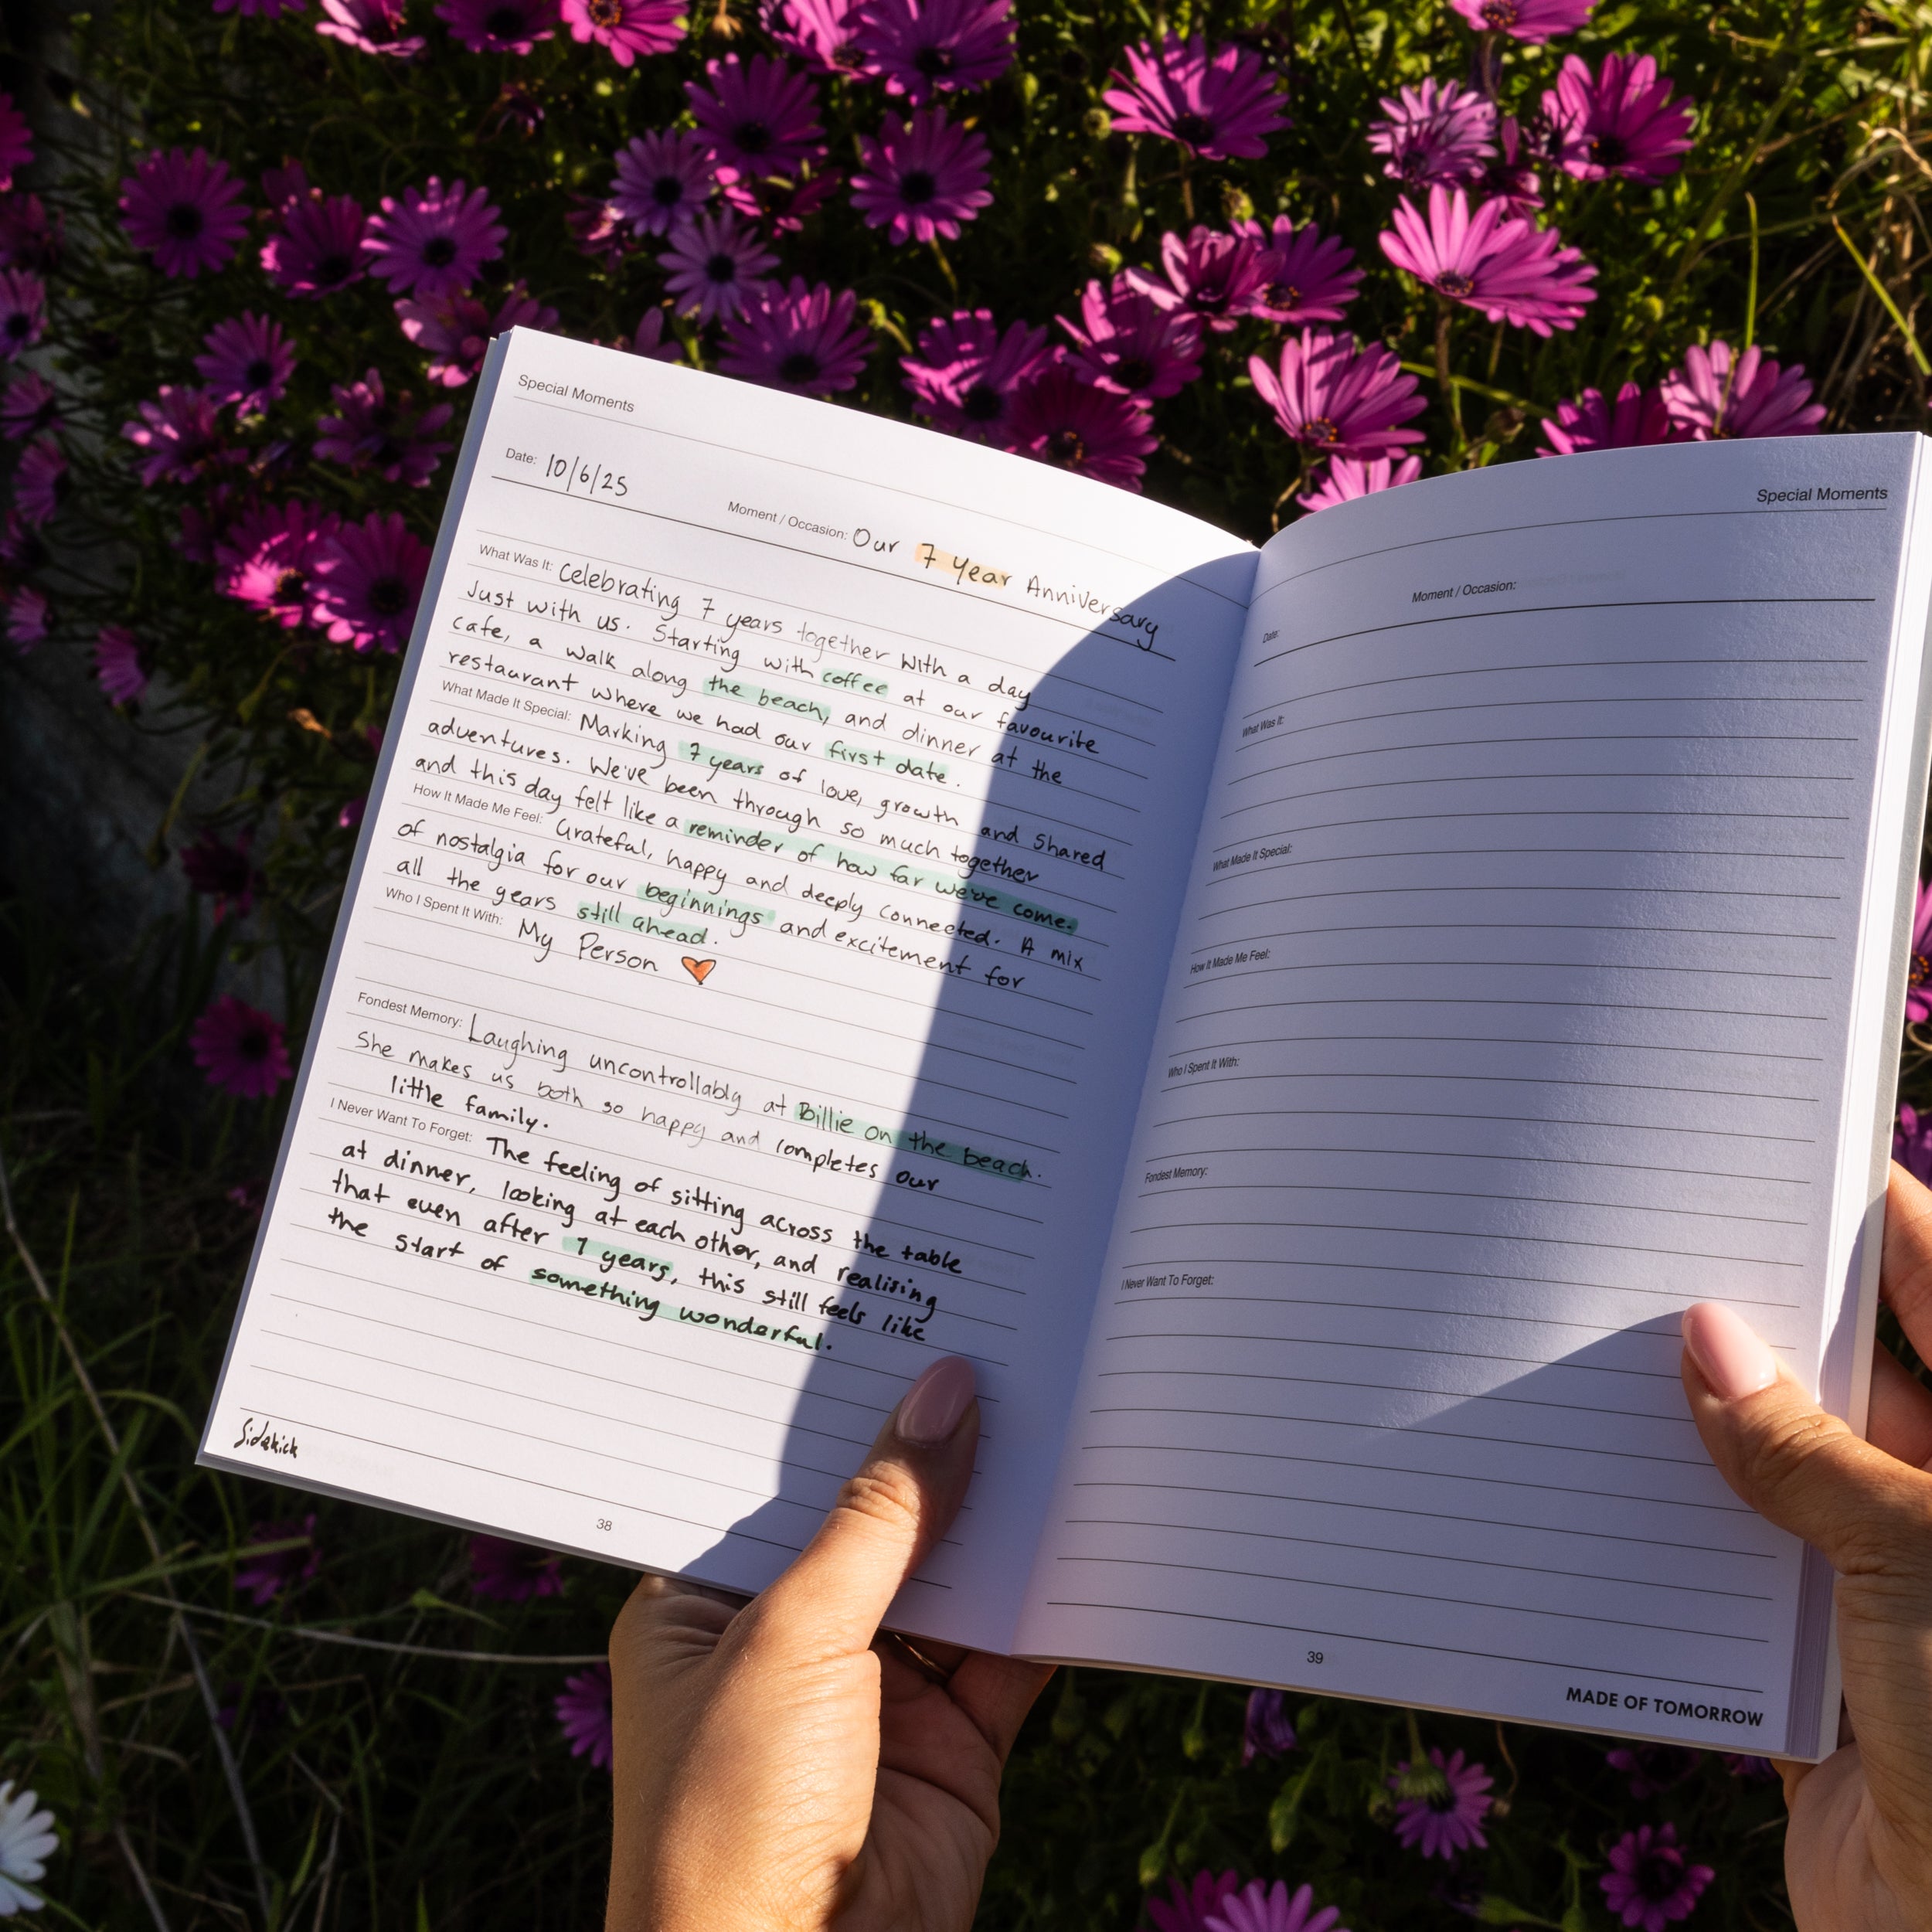 Special Moments
Date: 10/6/25
Moment / Occasion: Our 7 Year Anniversary
What Was It: Celebrating 7 years together with a day
Just with us. Starting with coffee at our favourite
cafe, a walk along the beach, and dinner at the
restaurant where we had our first date.
What Made It Special: Marking 7 years of love, growth and shared
adventures. We've been through so much together
and this day felt like a reminder of how far we've come.
How It Made Me Feel: Grateful, happy and deeply connected. A mix
of nostalgia for our beginnings and excitement for
all the years still ahead.
Who I Spent It With: My Person
Fondest Memory: Laughing uncontrollably at Billie on the beach.
She makes us both so happy and completes our
little family.
I Never Want To Forget: The feeling of sitting across the table
at dinner, looking at each other, and realising
that even after 7 years, this still feels like
the start of something wonderful.
Sidekick
38
Special Moments
Moment / Occasion:
Date:
What Was It:
What Made It Special:
How It Made Me Feel:
Who I Spent It With:
Fondest Memory:
I Never Want To Forget:
39
MADE OF TOMORROW